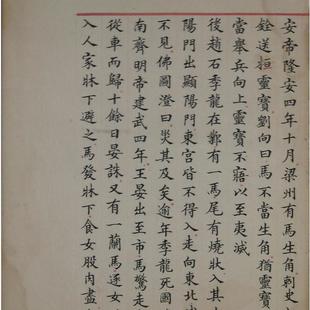 安帝隆安四年十月梁州有馬生角刺史
銓送桓靈寶劉向曰馬不當生角猶靈寶
當舉兵向上靈寶不寤以至夷滅
後趙石季龍在鄴有一馬尾有燒狀入其
陽門出顯陽門東宮皆不得入走向東北
不見佛圖澄曰災其及矣逾年季龍死國
南齊明帝建武四年王晏出至市馬驚走
從車而歸十餘日晏誅又有一蘭馬逐女
入人家牀下避之馬發牀下食女股肉盡